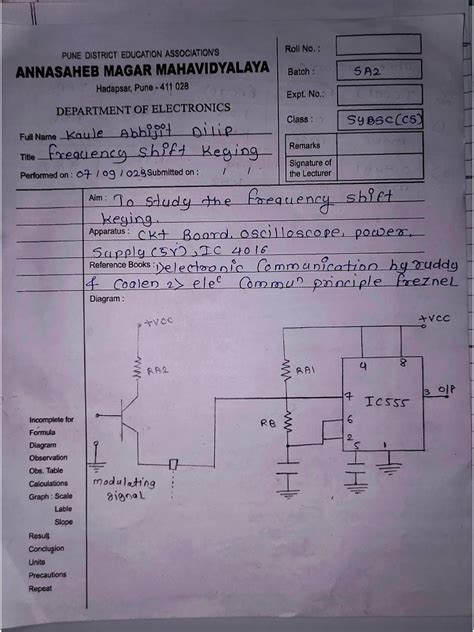 PUNE DISTRICT EDUCATION ASSOCIATION'S
ANNASAHEB MAGAR MAHAVIDYALAYA
Hadapsar, Pune - 411 028
DEPARTMENT OF ELECTRONICS
Roll No. :
Batch : SA2
Expt. No.:
Class : SYBSC(CS)
Remarks
Signature of
the Lecturer
Full Name Kaule Abhijit Dilip
Title Frequency Shift Keying
Performed on : 07/09/023 Submitted on : / /
Aim : To study the frequency shift
keying.
Apparatus : CKt Board, oscilloscope, power
Supply (5V), IC 4016
Reference Books : 1) electronic Communication by ruddy
& Coolen 2> elec Commun principle freznel
Diagram :
+VCC
RA2
modulating
signal
+VCC
RA1
RB
4
8
7
IC555
3
O/P
6
2
5
1
Incomplete for
Formula
Diagram
Observation
Obs. Table
Calculations
Graph : Scale
Lable
Slope
Result
Conclusion
Units
Precautions
Repeat